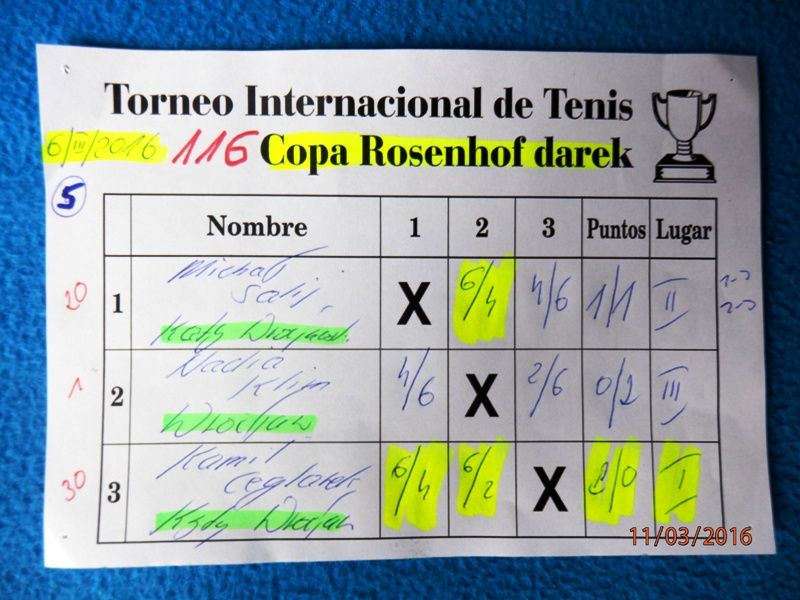 Torneo Internacional de Tenis
6/III/2016 116 Copa Rosenhof darek
5
Nombre 1 2 3 Puntos Lugar
20 1 Michał X 6/4 4/6 1/1 II
1 2 Nadia Klim 4/6 X 2/6 0/2 III
30 3 Kamil Ceglarek 6/4 6/2 X 2/0 I
11/03/2016